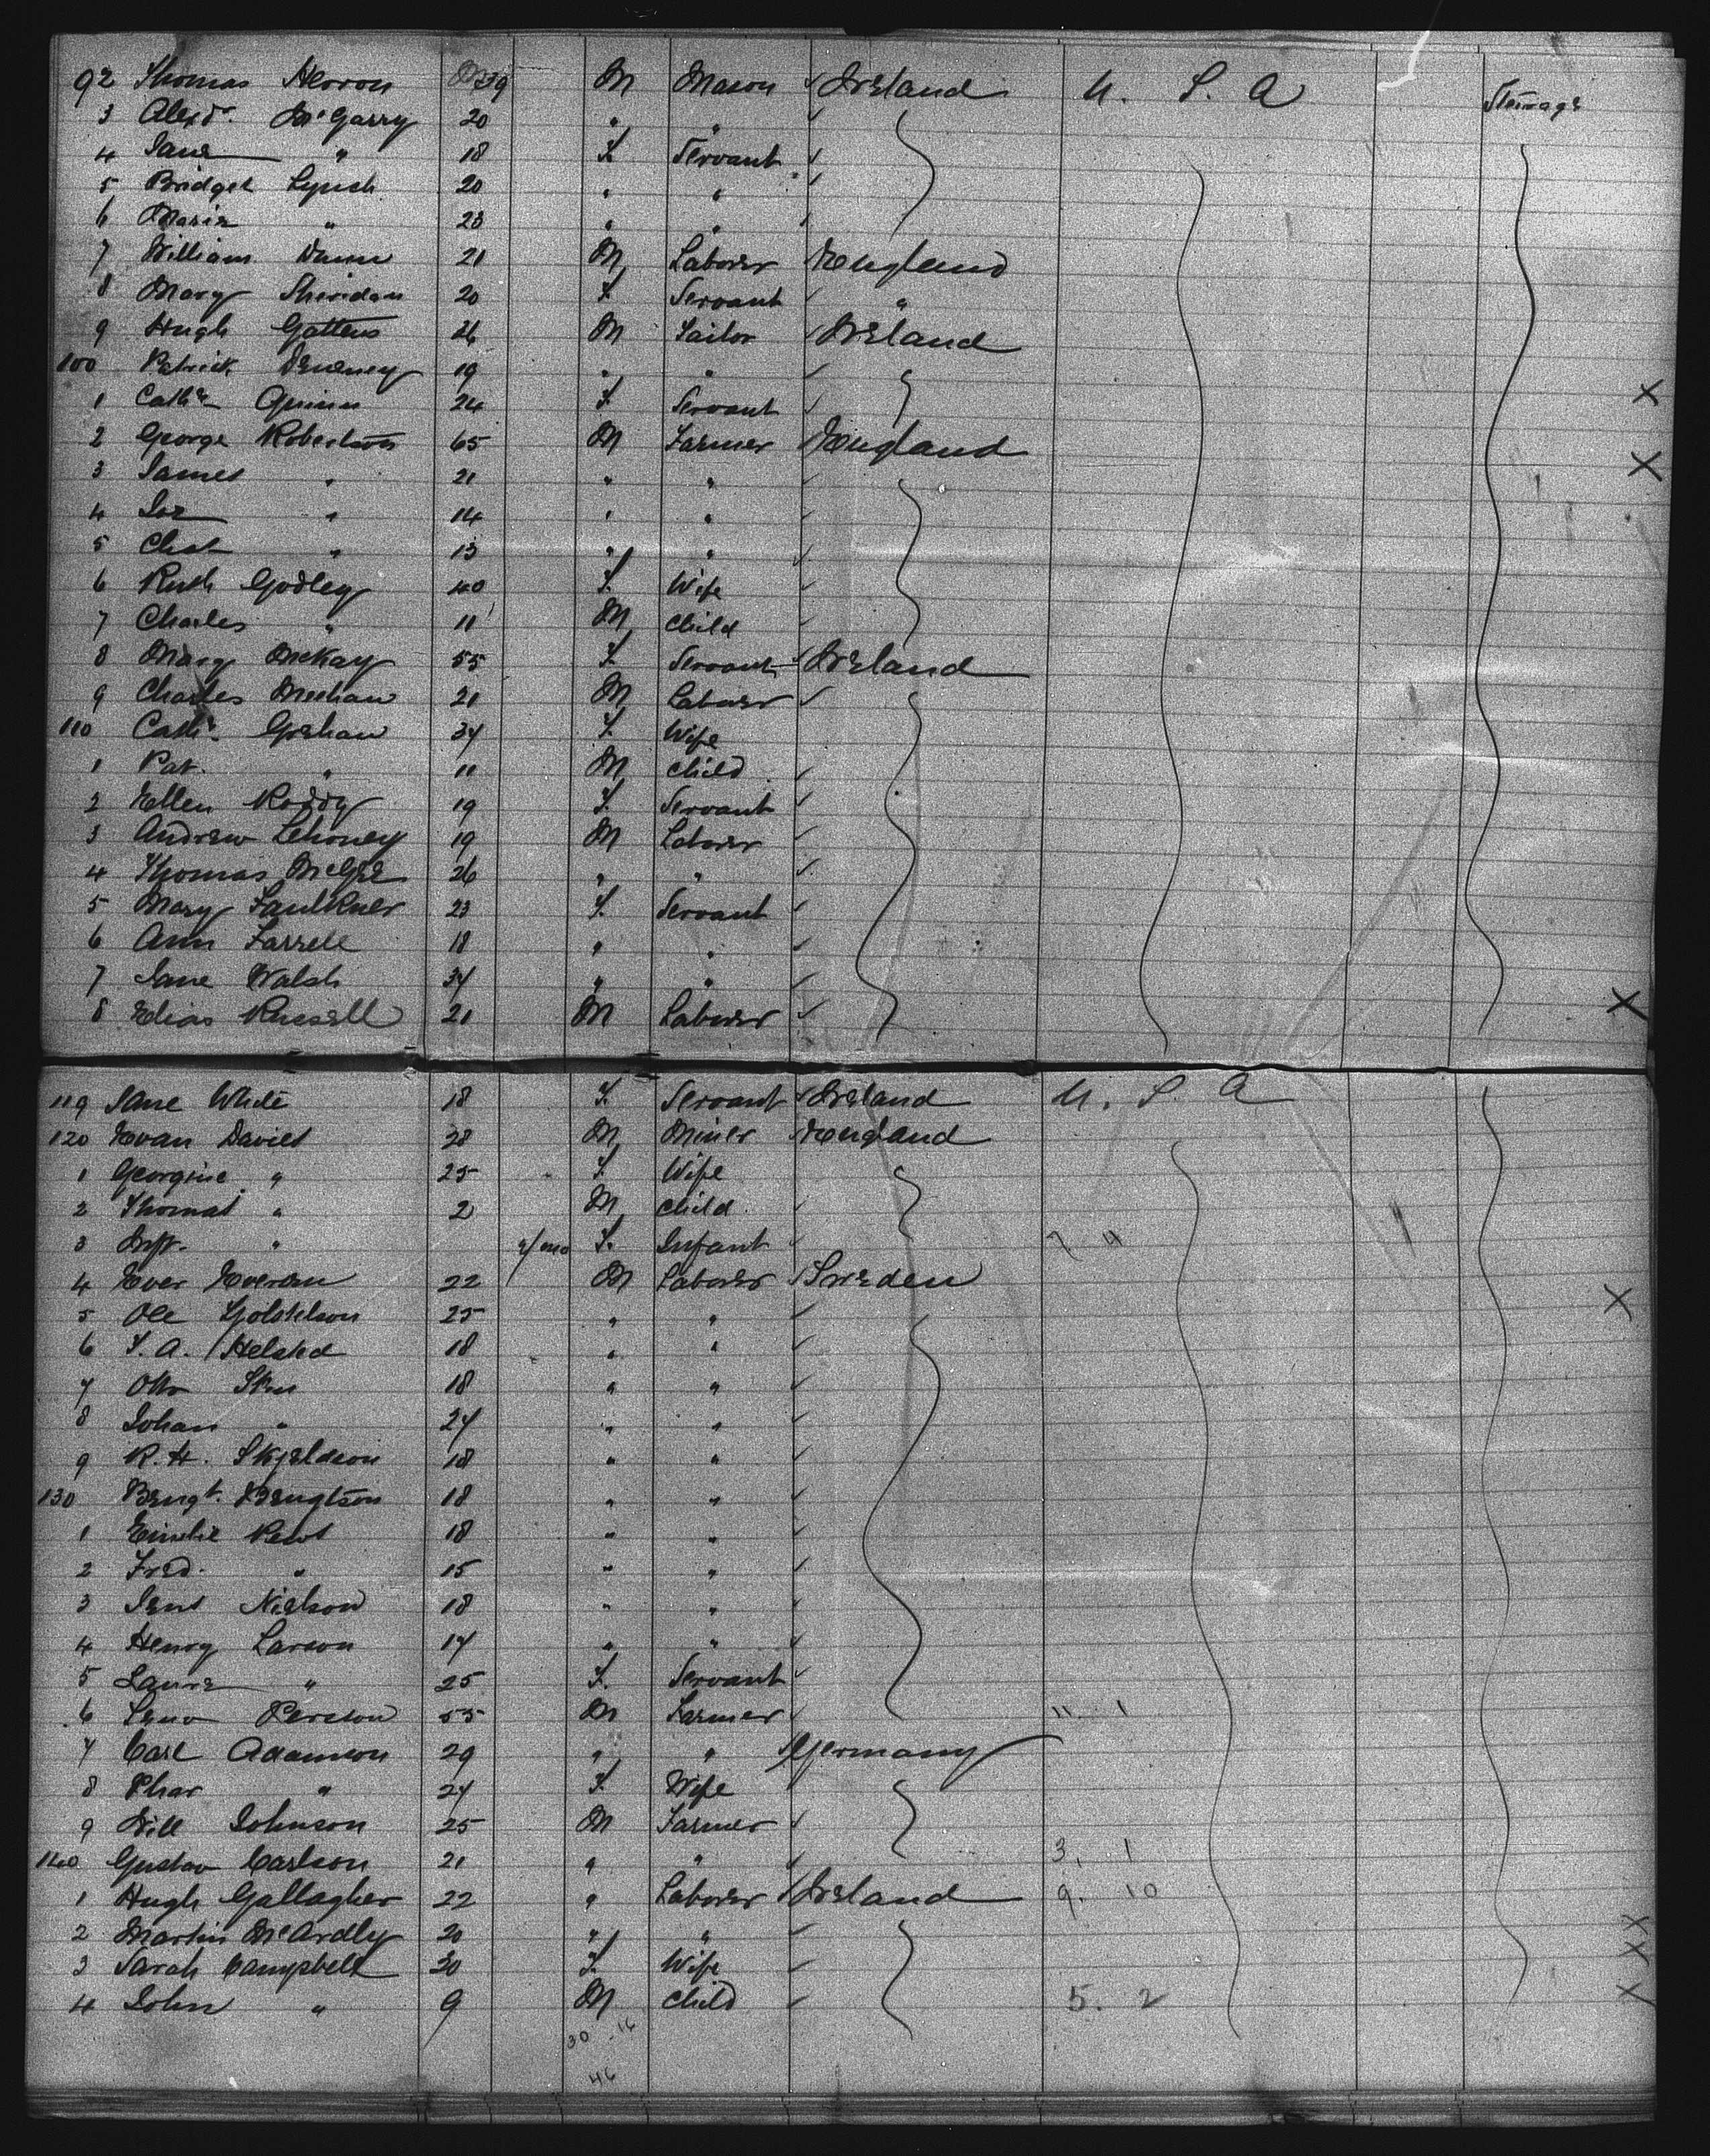 92 Thomas Herron 39 M Mason ✓ Ireland U. S. A Steerage
3 Alexdr. McGarry 20 " " ✓
4 Jane " 18 F. Servant ✓
5 Bridget Lynch 20 " " ✓
6 Maria " 23 " "
7 William Dunn 21 M Laborer England
8 Mary Sheridan 20 F. Servant ✓ "
9 Hugh Gattens 26 M Tailor ✓ Ireland
100 Patrick 19 " " ✓
1 Cathe. Quinn 24 F. Servant ✓ X
2 George Robertson 65 M Farmer England X
3 James " 21 " " ✓
4 Jas " 14 " " ✓
5 Chas " 13 " " ✓
6 Ruth Godley 40 F. Wife ✓
7 Charles " 11 M Child ✓
8 Mary McKay 55 F. Servant ✓ Ireland
9 Charles Meehan 21 M Laborer ✓
110 Cathe. Grehan 34 F. Wife
1 Pat. " 11 M Child ✓
2 Ellen Roddy 19 F. Servant ✓
3 Andrew 19 M Laborer ✓
4 Thomas McGee 26 " " ✓
5 Mary Faulkner 23 F. Servant ✓
6 Ann Farrell 18 " " ✓
7 Jane Walsh 34 " " ✓
8 Elias Russell 21 M Laborer ✓ X
119 Jane White 18 F. Servant ✓ Ireland U. S. A
120 Evan Davies 28 M Miner ✓ England
1 Georgine " 25 F. Wife
2 Thomas " 2 M Child ✓
3 Inft. " mo F. Infant ✓ 7 4
4 Ever Everson 22 M Laborer ✓ Sweden X
5 Ole 25 " " ✓
6 F. A. Helsted 18 " " ✓
7 Otto 18 " " ✓
8 Johan " 24 " " ✓
9 R. H. Skjeldson 18 " " ✓
130 Bengt. Bengtson 18 " " ✓
1 Emelie 18 " " ✓
2 Fred. " 15 " " ✓
3 Jens Nielson 18 " " ✓
4 Henry Larson 17 " " ✓
5 Laura " 25 F. Servant ✓
6 Person 55 M Farmer ✓ 11. 1
7 Carl Adamson 29 " " ✓ Germany
8 " 24 F. Wife
9 Will Johnson 25 M Farmer ✓
140 Gustav Carlson 21 " " ✓ 3. 1
1 Hugh Gallagher 22 " Laborer ✓ Ireland 9. 10
2 Martin McArdly 20 " " ✓ X X
3 Sarah Campbell 30 F. Wife ✓ X X
4 John " 9 M Child ✓ 5. 2 X X
30 - 16
46